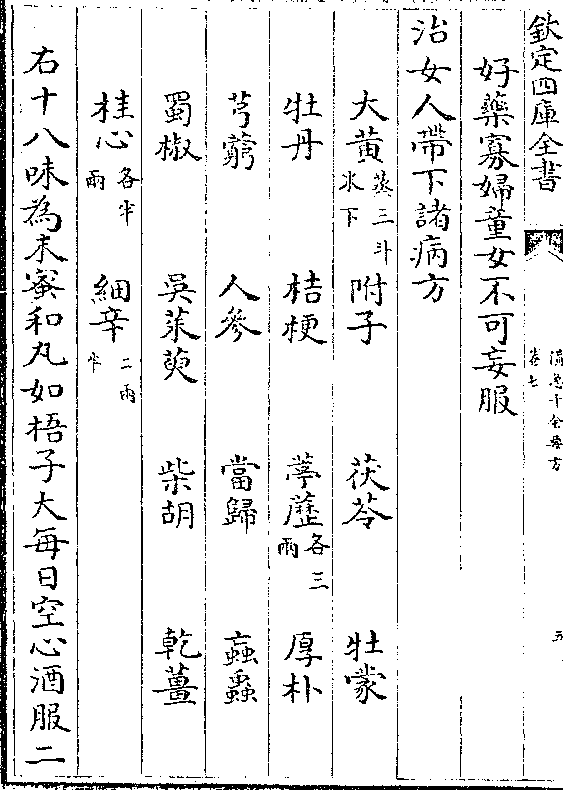 欽定四庫全書
備急千金要方
卷七
五
好藥寡婦童女不可妄服
治女人帶下諸病方
大黃蒸三斗米下 附子 茯苓 牡蒙
牡丹 桔梗 葶藶各三兩 厚朴
芎藭 人參 當歸 蝱蟲
蜀椒 吳茱萸 柴胡 乾薑
桂心各半兩 細辛二兩半
右十八味為末蜜和丸如梧子大每日空心酒服二